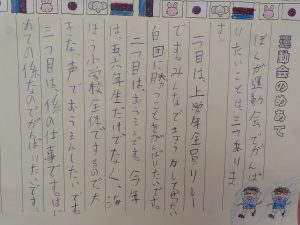 運動会のめあて
ぼくが運動会でがんば
りたいことは三つありま
す。
一つ目は、上学年全員リレー
です。みんなできょう力してぜっ対
白団に勝つことをがんばりたいです。
二つ目は、おうえんです。今年
は、五六年生だけでなく、海
ほう小学校全体でするので大
きな声でおうえんしたいです。
三つ目は、係の仕事です。はじ
めての係なのでがんばりたいです。